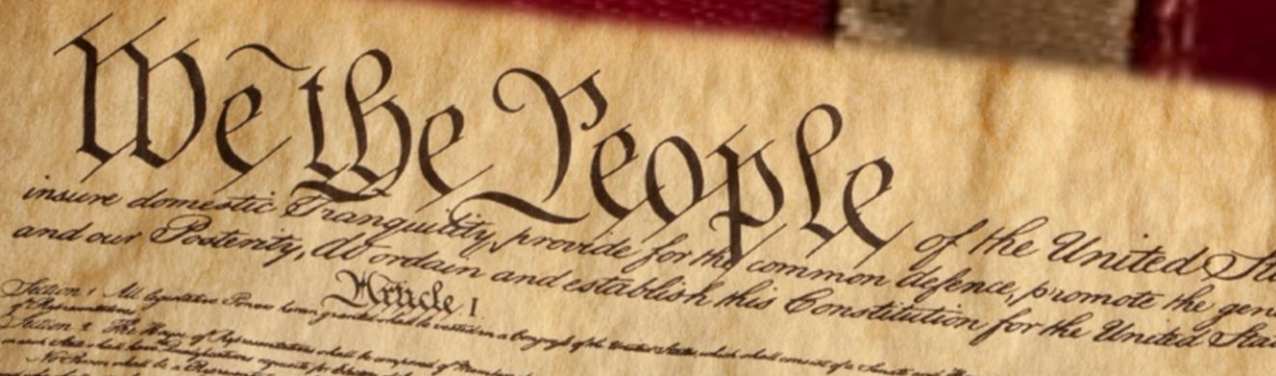 We the People of the United
insure domestic Tranquility, provide for the common defence, promote the gen
and our Posterity, do ordain and establish this Constitution for the United Sta
Article I.
Section 1 All legislative Powers herein granted shall be vested in a Congress of the United States, which shall consist of a Senate and
of Representatives
Section 2 The House of Representatives shall be composed of